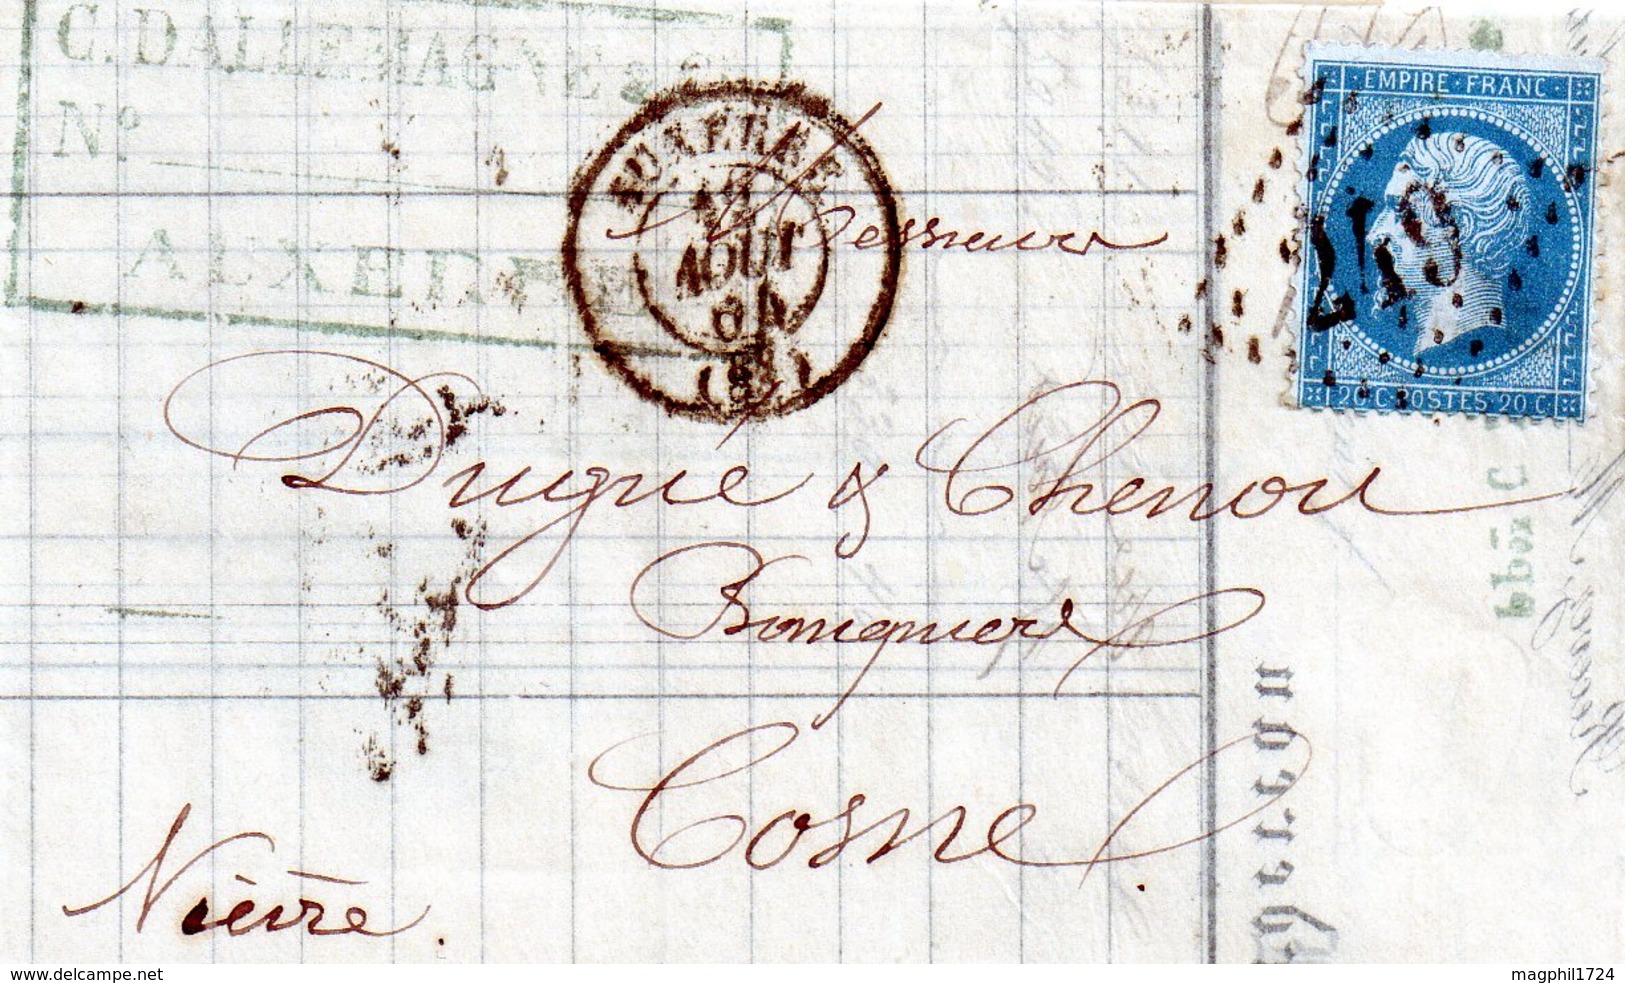 C. DALLEMAGNE & C
Nº
AUXERRE
AUXERRE
AOUT
EMPIRE FRANC
249
20 C POSTES 20 C
Messieurs
Dugué & Chenou
Banquiers
Cosne
Nièvre.
www.delcampe.net
magphil1724